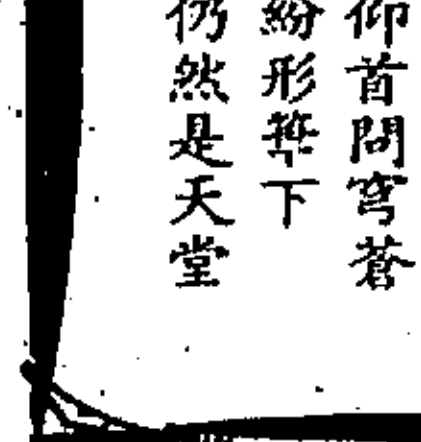 仰首問穹蒼
紛形𨫼下
仍然是天堂